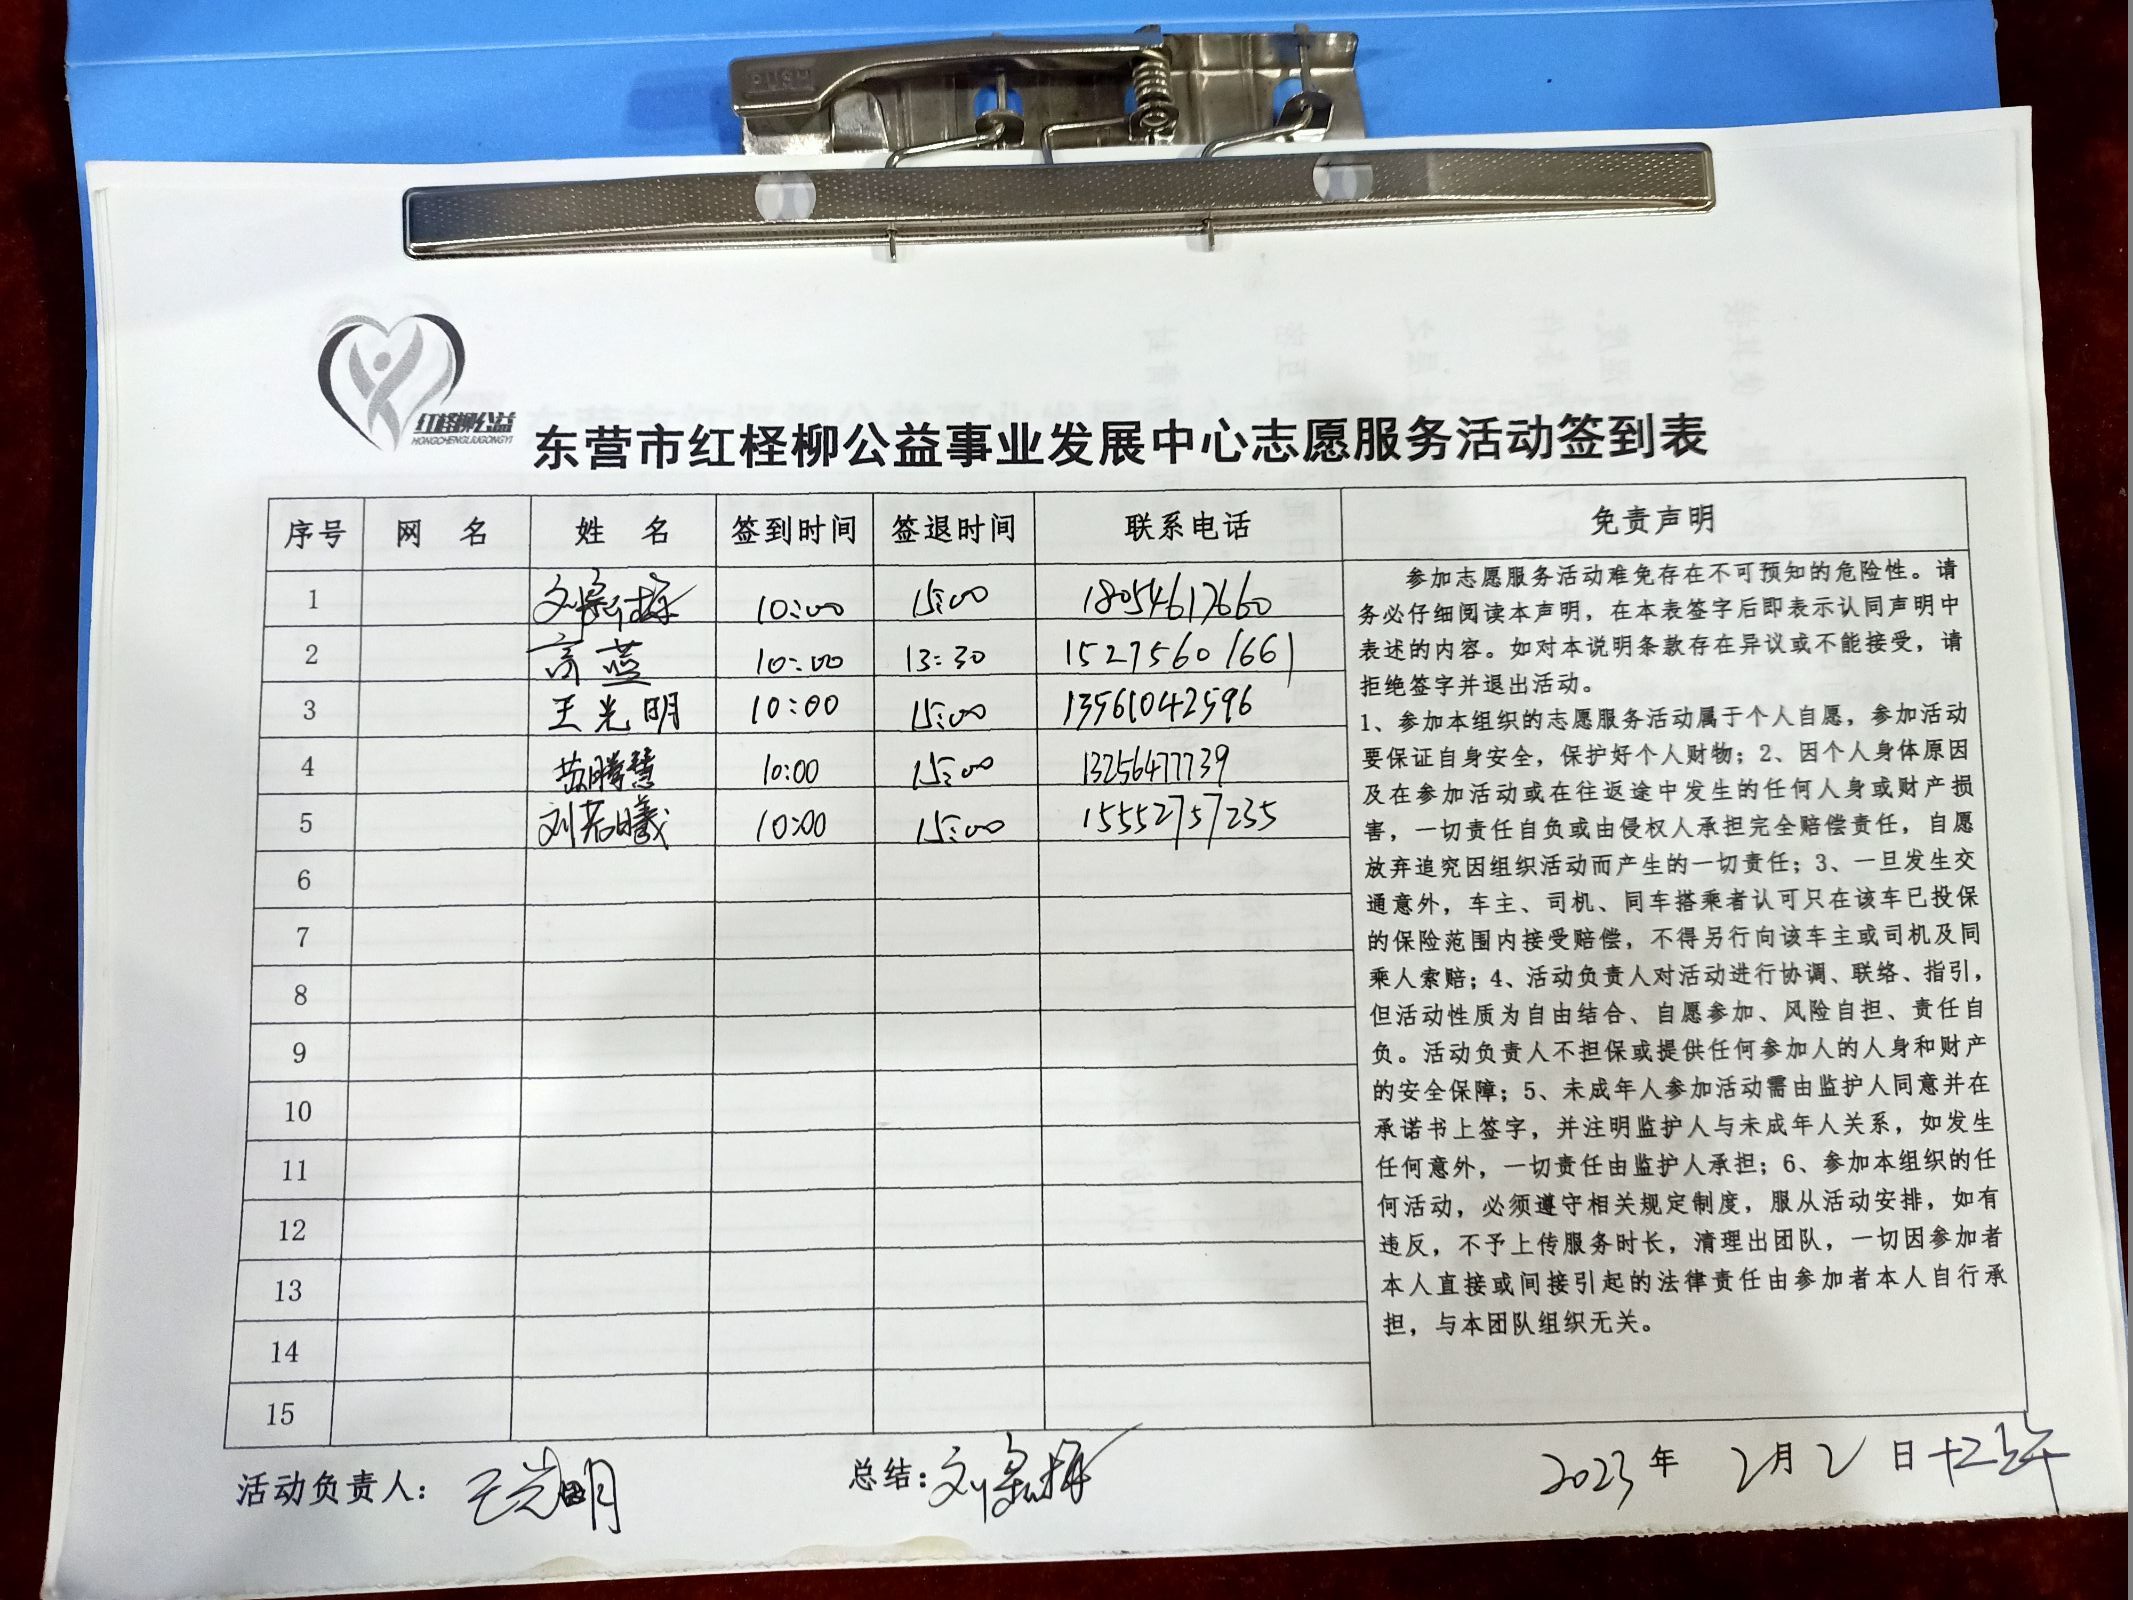 红柽柳公益
HONGCHENGLIUGONGYI
东营市红柽柳公益事业发展中心志愿服务活动签到表
序号 网 名 姓 名 签到时间 签退时间 联系电话 免责声明
1 10:00 15:00 18054617660
2 高蓝 10:00 13:30 15275601661
3 王光明 10:00 15:00 13561042596
4 苏腾慧 10:00 15:00 13256477739
5 刘若曦 10:00 15:00 15552757235
6
7
8
9
10
11
12
13
14
15
参加志愿服务活动难免存在不可预知的危险性。请
务必仔细阅读本声明，在本表签字后即表示认同声明中
表述的内容。如对本说明条款存在异议或不能接受，请
拒绝签字并退出活动。
1、参加本组织的志愿服务活动属于个人自愿，参加活动
要保证自身安全，保护好个人财物；2、因个人身体原因
及在参加活动或在往返途中发生的任何人身或财产损
害，一切责任自负或由侵权人承担完全赔偿责任，自愿
放弃追究因组织活动而产生的一切责任；3、一旦发生交
通意外，车主、司机、同车搭乘者认可只在该车已投保
的保险范围内接受赔偿，不得另行向该车主或司机及同
乘人索赔；4、活动负责人对活动进行协调、联络、指引，
但活动性质为自由结合、自愿参加、风险自担、责任自
负。活动负责人不担保或提供任何参加人的人身和财产
的安全保障；5、未成年人参加活动需由监护人同意并在
承诺书上签字，并注明监护人与未成年人关系，如发生
任何意外，一切责任由监护人承担；6、参加本组织的任
何活动，必须遵守相关规定制度，服从活动安排，如有
违反，不予上传服务时长，清理出团队，一切因参加者
本人直接或间接引起的法律责任由参加者本人自行承
担，与本团队组织无关。
活动负责人：王光明 总结：刘 2023年2月2日